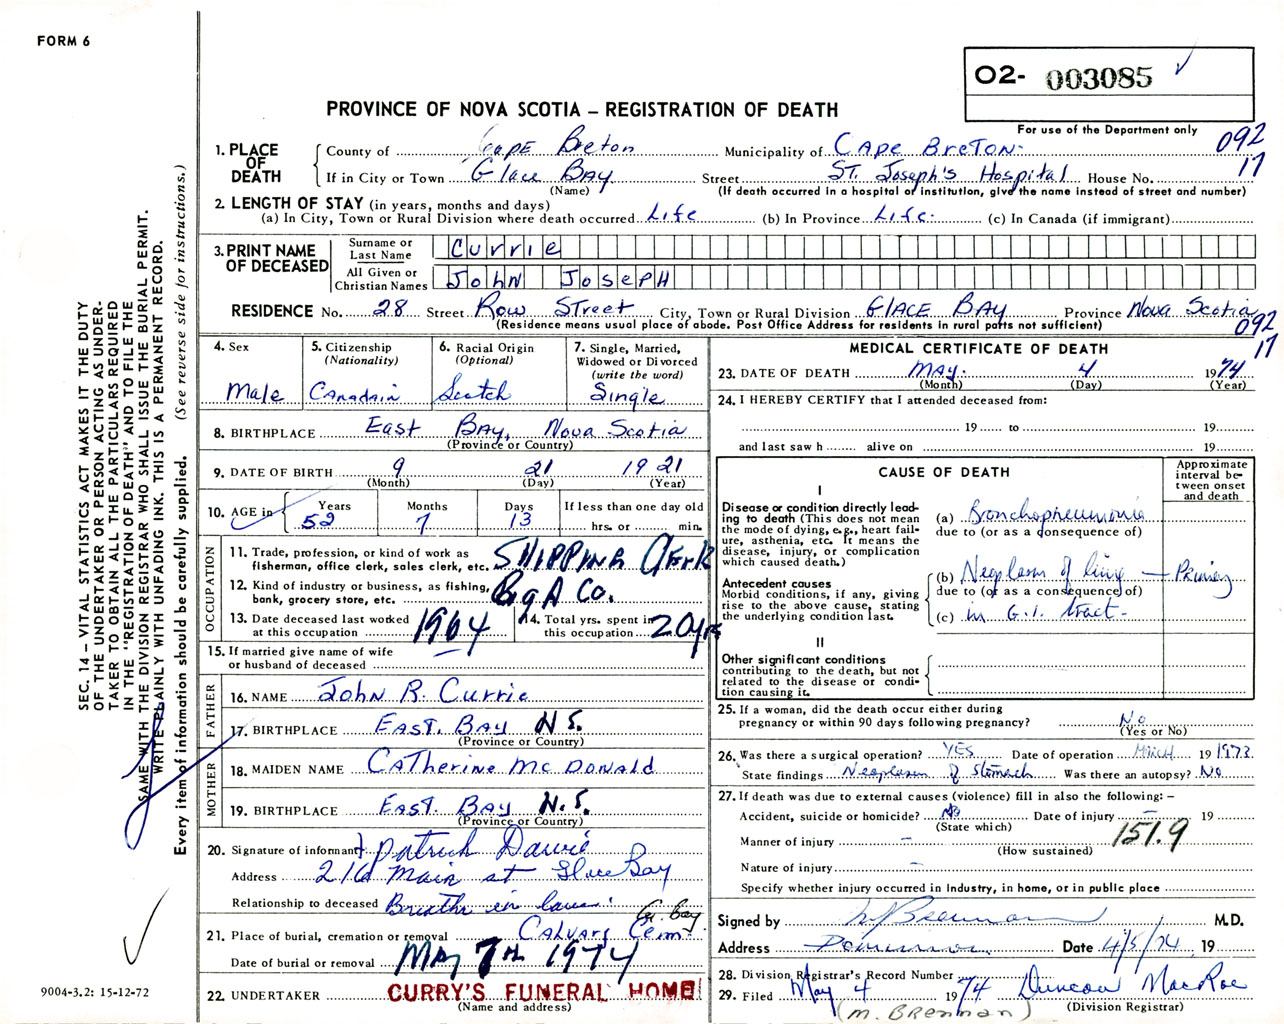 FORM 6
O2- 003085
PROVINCE OF NOVA SCOTIA – REGISTRATION OF DEATH
For use of the Department only
092
17
1. PLACE OF DEATH
County of Cape Breton Municipality of Cape Breton
If in City or Town Glace Bay Street St. Joseph's Hospital House No.
(Name) (If death occurred in a hospital or institution, give the name instead of street and number)
2. LENGTH OF STAY (in years, months and days)
(a) In City, Town or Rural Division where death occurred Life (b) In Province Life (c) In Canada (if immigrant)
3. PRINT NAME OF DECEASED
Surname or Last Name Currie
All Given or Christian Names John Joseph
RESIDENCE No. 28 Street Row Street City, Town or Rural Division GLACE BAY Province Nova Scotia
(Residence means usual place of abode. Post Office Address for residents in rural parts not sufficient)
092
17
4. Sex
Male
5. Citizenship (Nationality)
Canadain
6. Racial Origin (Optional)
Scotch
7. Single, Married, Widowed or Divorced (write the word)
Single
8. BIRTHPLACE East Bay, Nova Scotia
(Province or Country)
9. DATE OF BIRTH 9 21 1921
(Month) (Day) (Year)
10. AGE in Years Months Days If less than one day old
52 7 13 hrs. or min.
OCCUPATION
11. Trade, profession, or kind of work as fisherman, office clerk, sales clerk, etc. SHIPPING Clerk
12. Kind of industry or business, as fishing, bank, grocery store, etc. B & A Co.
13. Date deceased last worked at this occupation 1964
14. Total yrs. spent in this occupation 20 yrs
15. If married give name of wife or husband of deceased
FATHER
16. NAME John R. Currie
17. BIRTHPLACE EAST. BAY N.S.
(Province or Country)
MOTHER
18. MAIDEN NAME CATherine McDonald
19. BIRTHPLACE EAST. BAY N.S.
(Province or Country)
20. Signature of informant Patrick
Address 216 Main st Glace Bay
Relationship to deceased in law
21. Place of burial, cremation or removal Calvary Cem. Gl. Bay
Date of burial or removal May 7th 1974
22. UNDERTAKER CURRY'S FUNERAL HOME
(Name and address)
MEDICAL CERTIFICATE OF DEATH
23. DATE OF DEATH May 4 1974
(Month) (Day) (Year)
24. I HEREBY CERTIFY that I attended deceased from:
19 to 19
and last saw h alive on 19
CAUSE OF DEATH
Approximate interval between onset and death
I
Disease or condition directly leading to death (This does not mean the mode of dying, e.g., heart failure, asthenia, etc. It means the disease, injury, or complication which caused death.)
(a) Bronchopneumonia
due to (or as a consequence of)
Antecedent causes
Morbid conditions, if any, giving rise to the above cause, stating the underlying condition last.
(b) Neoplasm of — Primary
due to (or as a consequence of)
(c) in G.I. tract -
II
Other significant conditions contributing to the death, but not related to the disease or condition causing it.
25. If a woman, did the death occur either during pregnancy or within 90 days following pregnancy? No
(Yes or No)
26. Was there a surgical operation? YES Date of operation March 19 1973
State findings Neoplasm of stomach Was there an autopsy? No
27. If death was due to external causes (violence) fill in also the following: –
Accident, suicide or homicide? No Date of injury – 19
(State which)
Manner of injury – 151.9
(How sustained)
Nature of injury –
Specify whether injury occurred in Industry, in home, or in public place
Signed by Brennan M.D.
Address Dominion Date 4/5/74 19
28. Division Registrar's Record Number
29. Filed May 4 1974 Duncan MacRae
(Division Registrar)
(M. BRENNAN)
SEC. 14 – VITAL STATISTICS ACT MAKES IT THE DUTY
OF THE UNDERTAKER OR PERSON ACTING AS UNDER-
TAKER TO OBTAIN ALL THE PARTICULARS REQUIRED
IN THE "REGISTRATION OF DEATH" AND TO FILE THE
SAME WITH THE DIVISION REGISTRAR WHO SHALL ISSUE THE BURIAL PERMIT.
WRITE PLAINLY WITH UNFADING INK. THIS IS A PERMANENT RECORD.
Every item of information should be carefully supplied. (See reverse side for instructions.)
9004-3.2: 15-12-72